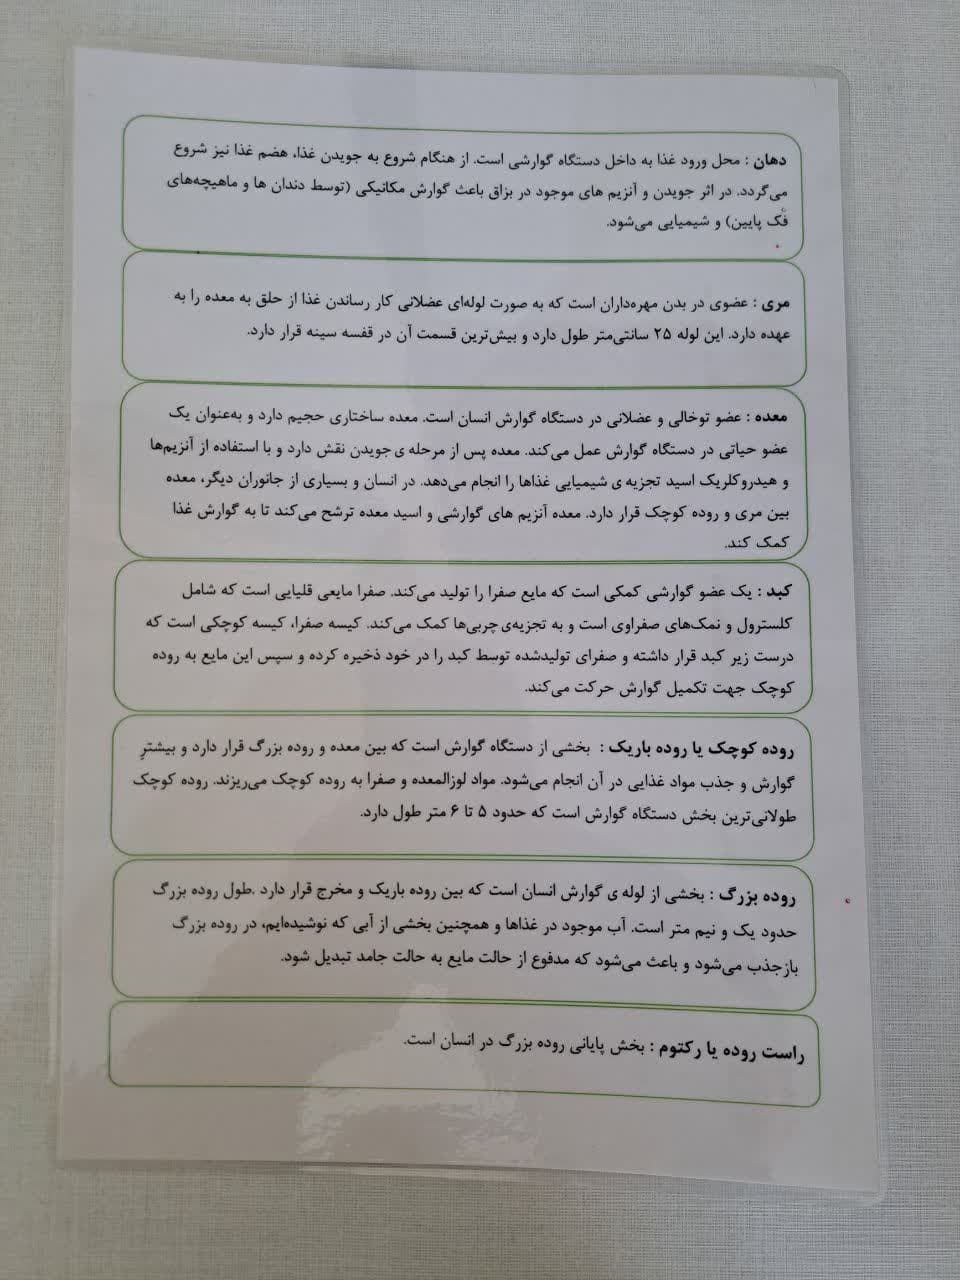 دهان : محل ورود غذا به داخل دستگاه گوارشی است. از هنگام شروع به جویدن غذا، هضم غذا نیز شروع
می‌گردد. در اثر جویدن و آنزیم های موجود در بزاق باعث گوارش مکانیکی (توسط دندان ها و ماهیچه‌های
فک پایین) و شیمیایی می‌شود.
مری : عضوی در بدن مهره‌داران است که به صورت لوله‌ای عضلانی کار رساندن غذا از حلق به معده را به
عهده دارد. این لوله ۲۵ سانتی‌متر طول دارد و بیش‌ترین قسمت آن در قفسه سینه قرار دارد.
معده : عضو توخالی و عضلانی در دستگاه گوارش انسان است. معده ساختاری حجیم دارد و به‌عنوان یک
عضو حیاتی در دستگاه گوارش عمل می‌کند. معده پس از مرحله ی جویدن نقش دارد و با استفاده از آنزیم‌ها
و هیدروکلریک اسید تجزیه ی شیمیایی غذاها را انجام می‌دهد. در انسان و بسیاری از جانوران دیگر، معده
بین مری و روده کوچک قرار دارد. معده آنزیم های گوارشی و اسید معده ترشح می‌کند تا به گوارش غذا
کمک کند.
کبد : یک عضو گوارشی کمکی است که مایع صفرا را تولید می‌کند. صفرا مایعی قلیایی است که شامل
کلسترول و نمک‌های صفراوی است و به تجزیه‌ی چربی‌ها کمک می‌کند. کیسه صفرا، کیسه کوچکی است که
درست زیر کبد قرار داشته و صفرای تولیدشده توسط کبد را در خود ذخیره کرده و سپس این مایع به روده
کوچک جهت تکمیل گوارش حرکت می‌کند.
روده کوچک یا روده باریک : بخشی از دستگاه گوارش است که بین معده و روده بزرگ قرار دارد و بیشترِ
گوارش و جذب مواد غذایی در آن انجام می‌شود. مواد لوزالمعده و صفرا به روده کوچک می‌ریزند. روده کوچک
طولانی‌ترین بخش دستگاه گوارش است که حدود ۵ تا ۶ متر طول دارد.
روده بزرگ : بخشی از لوله ی گوارش انسان است که بین روده باریک و مخرج قرار دارد .طول روده بزرگ
حدود یک و نیم متر است. آب موجود در غذاها و همچنین بخشی از آبی که نوشیده‌ایم، در روده بزرگ
بازجذب می‌شود و باعث می‌شود که مدفوع از حالت مایع به حالت جامد تبدیل شود.
راست روده یا رکتوم : بخش پایانی روده بزرگ در انسان است.